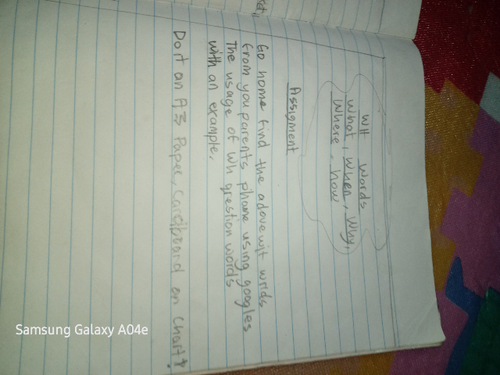 WH Words
What, When, Why,
Where, how
Assigment
Go home find the adove wit wrids
from you parents phame using googles
The usage of Wh qrestion words
with an example,
Do it an A3 Paper, cardboard on Chart
Samsung Galaxy A04e